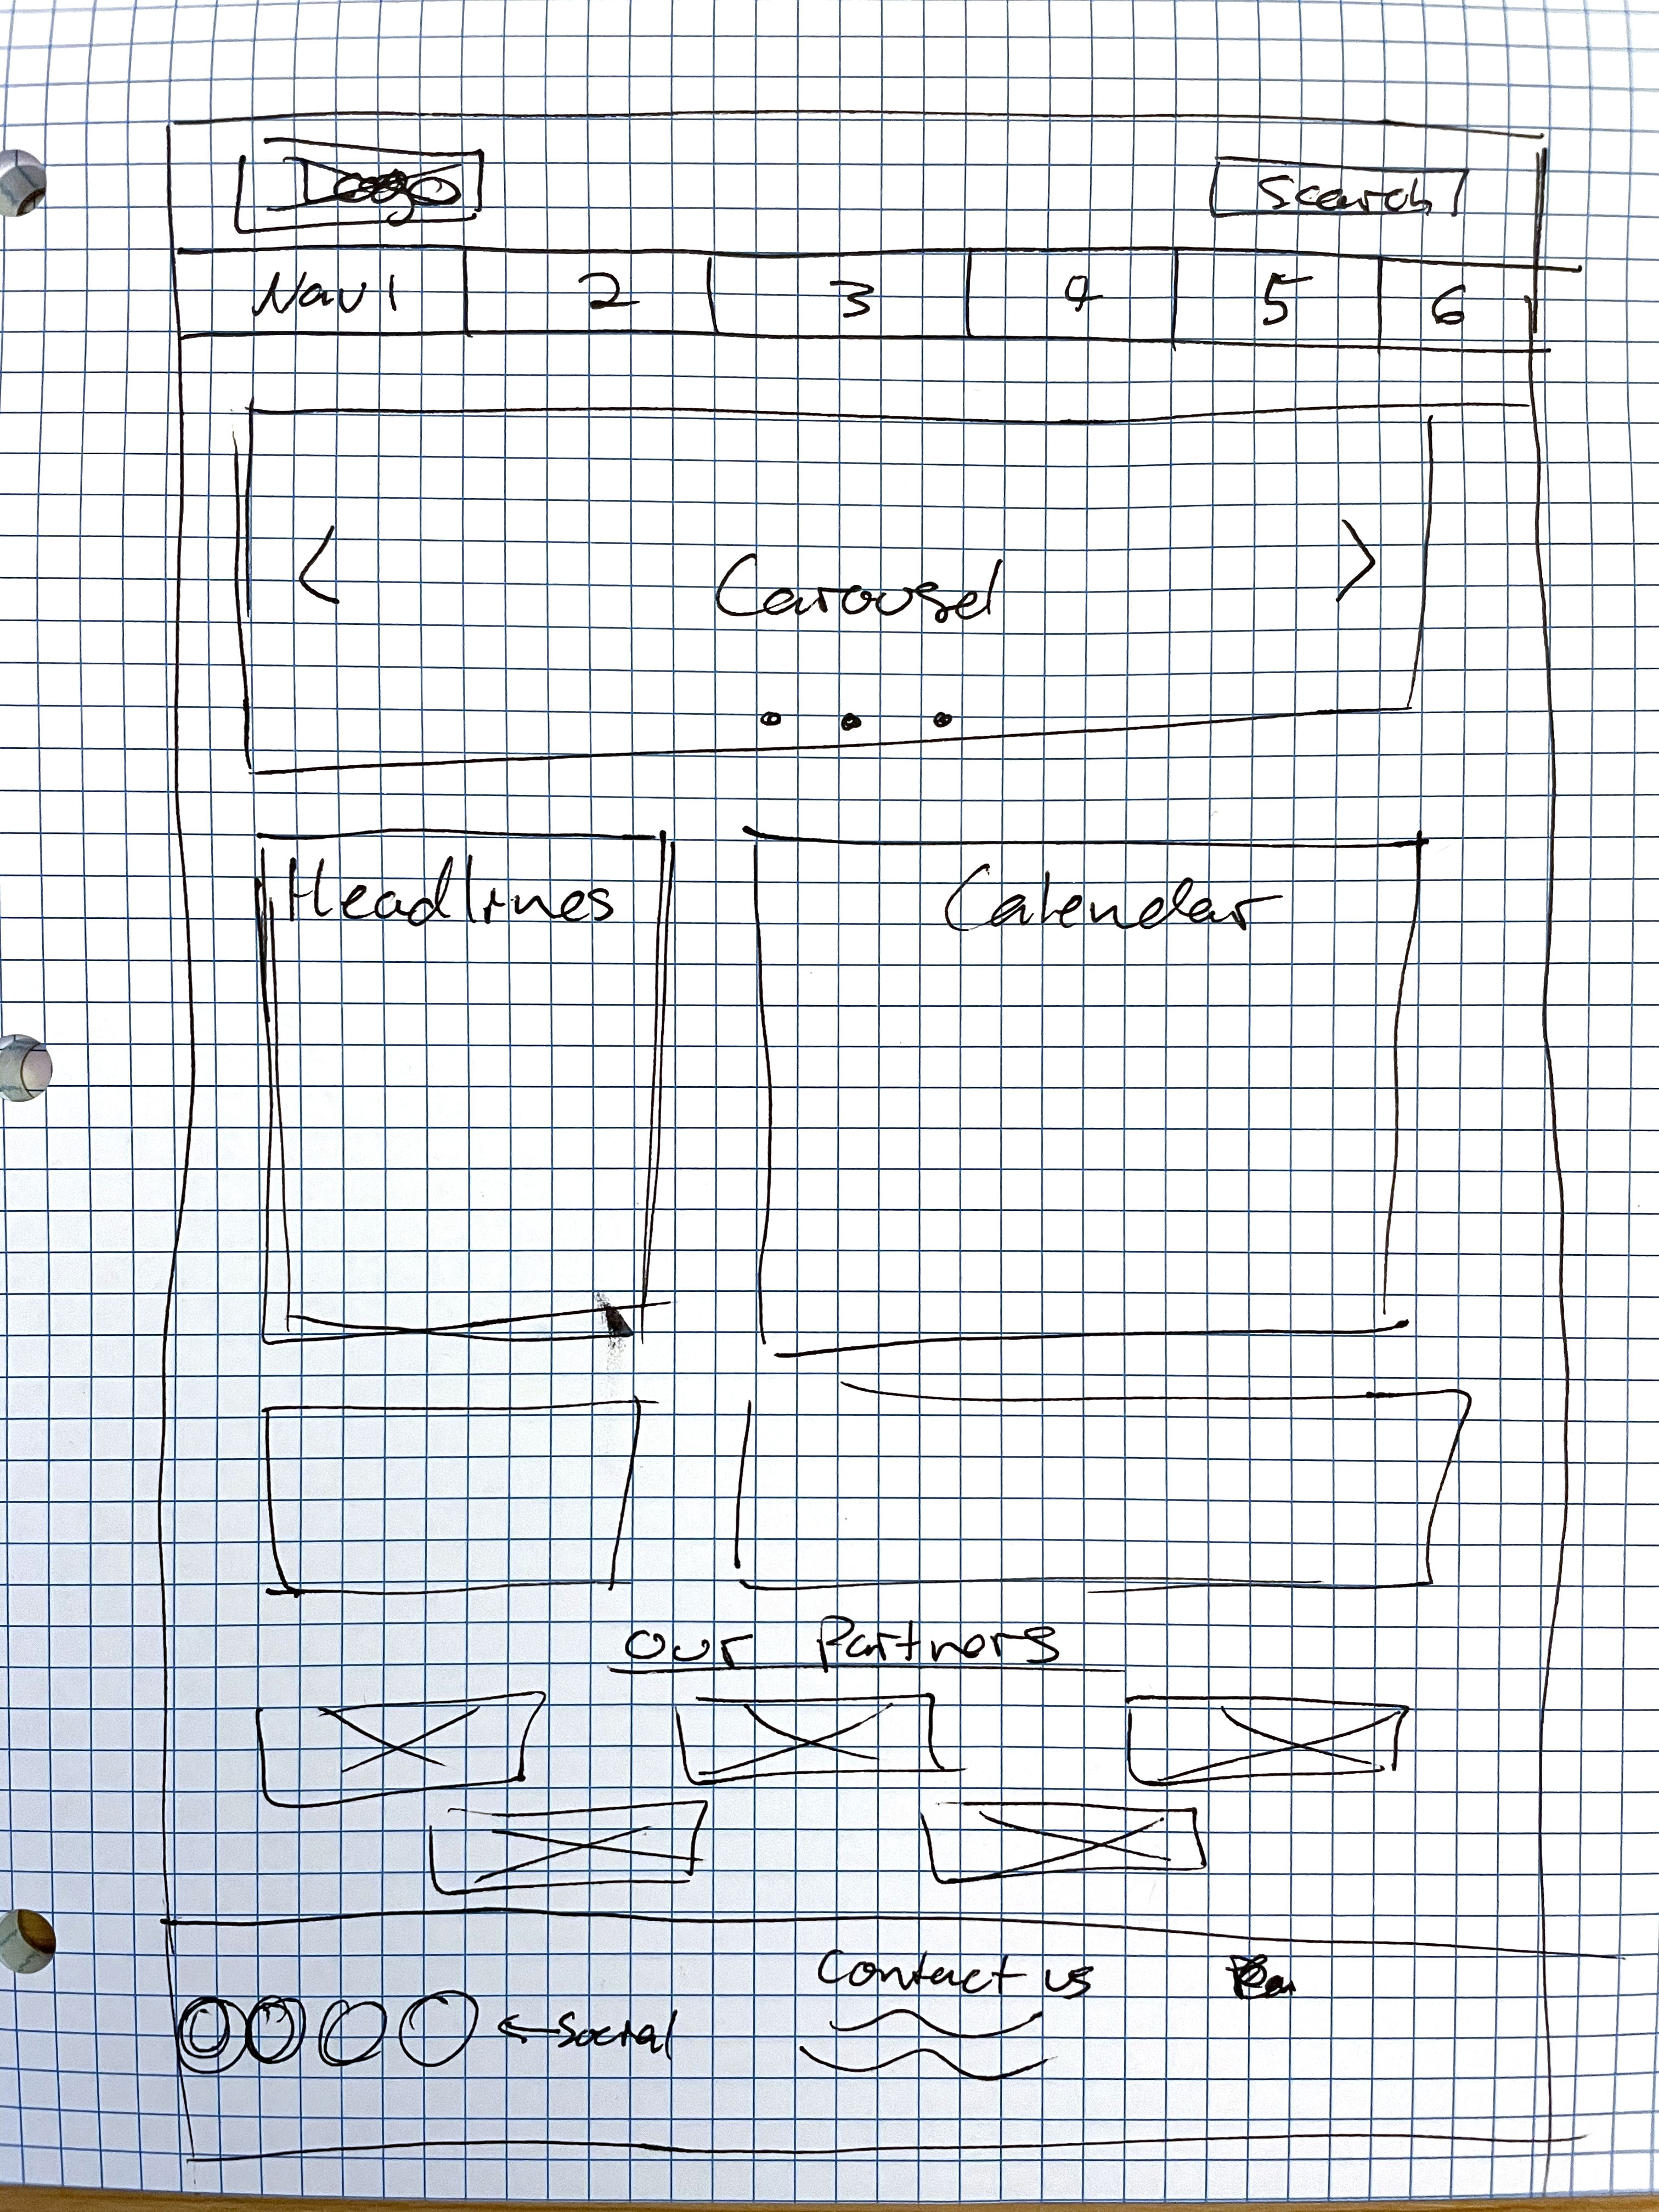 Logo
Search
Nav 1 2 3 4 5 6
< Carousel >
Headlines
Calendar
Our Partners
Contact us
← Social